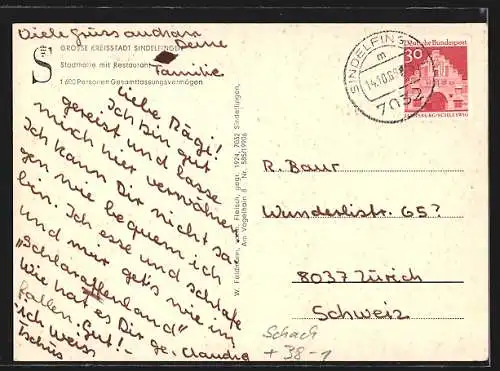 Viele Grüsse an
Deine
Familie
GROSSE KREISSTADT SINDELFINGEN
Stadthalle mit Restaurant
1 600 Personen Gesamtfassungsvermögen
S
Liebe Rägi!
Ich bin gut
gereist und lasse
mich hier verwöhnen
Ich kann Dir nicht sa-
gen wie bequem ich
bin. Ich esse und schlafe
und mir geht's wie im
"Schlaraffenland"
Wie hat es Dir ge-
fallen. Gut! -
-ich weiss
Tschüs
Claudia
W. Feldmann, vorm. Fleisch, gegr. 1924, 7032 Sindelfingen,
Am Vogelhain 8 Nr. 585/19906
SINDELFINGEN
m
14.10.69
7032
Deutsche Bundespost
30
FLENSBURG/SCHLESWIG
R. Baur
Wunderlistr. 65?
8037 Zürich
Schweiz
Schach
+ 38 -1